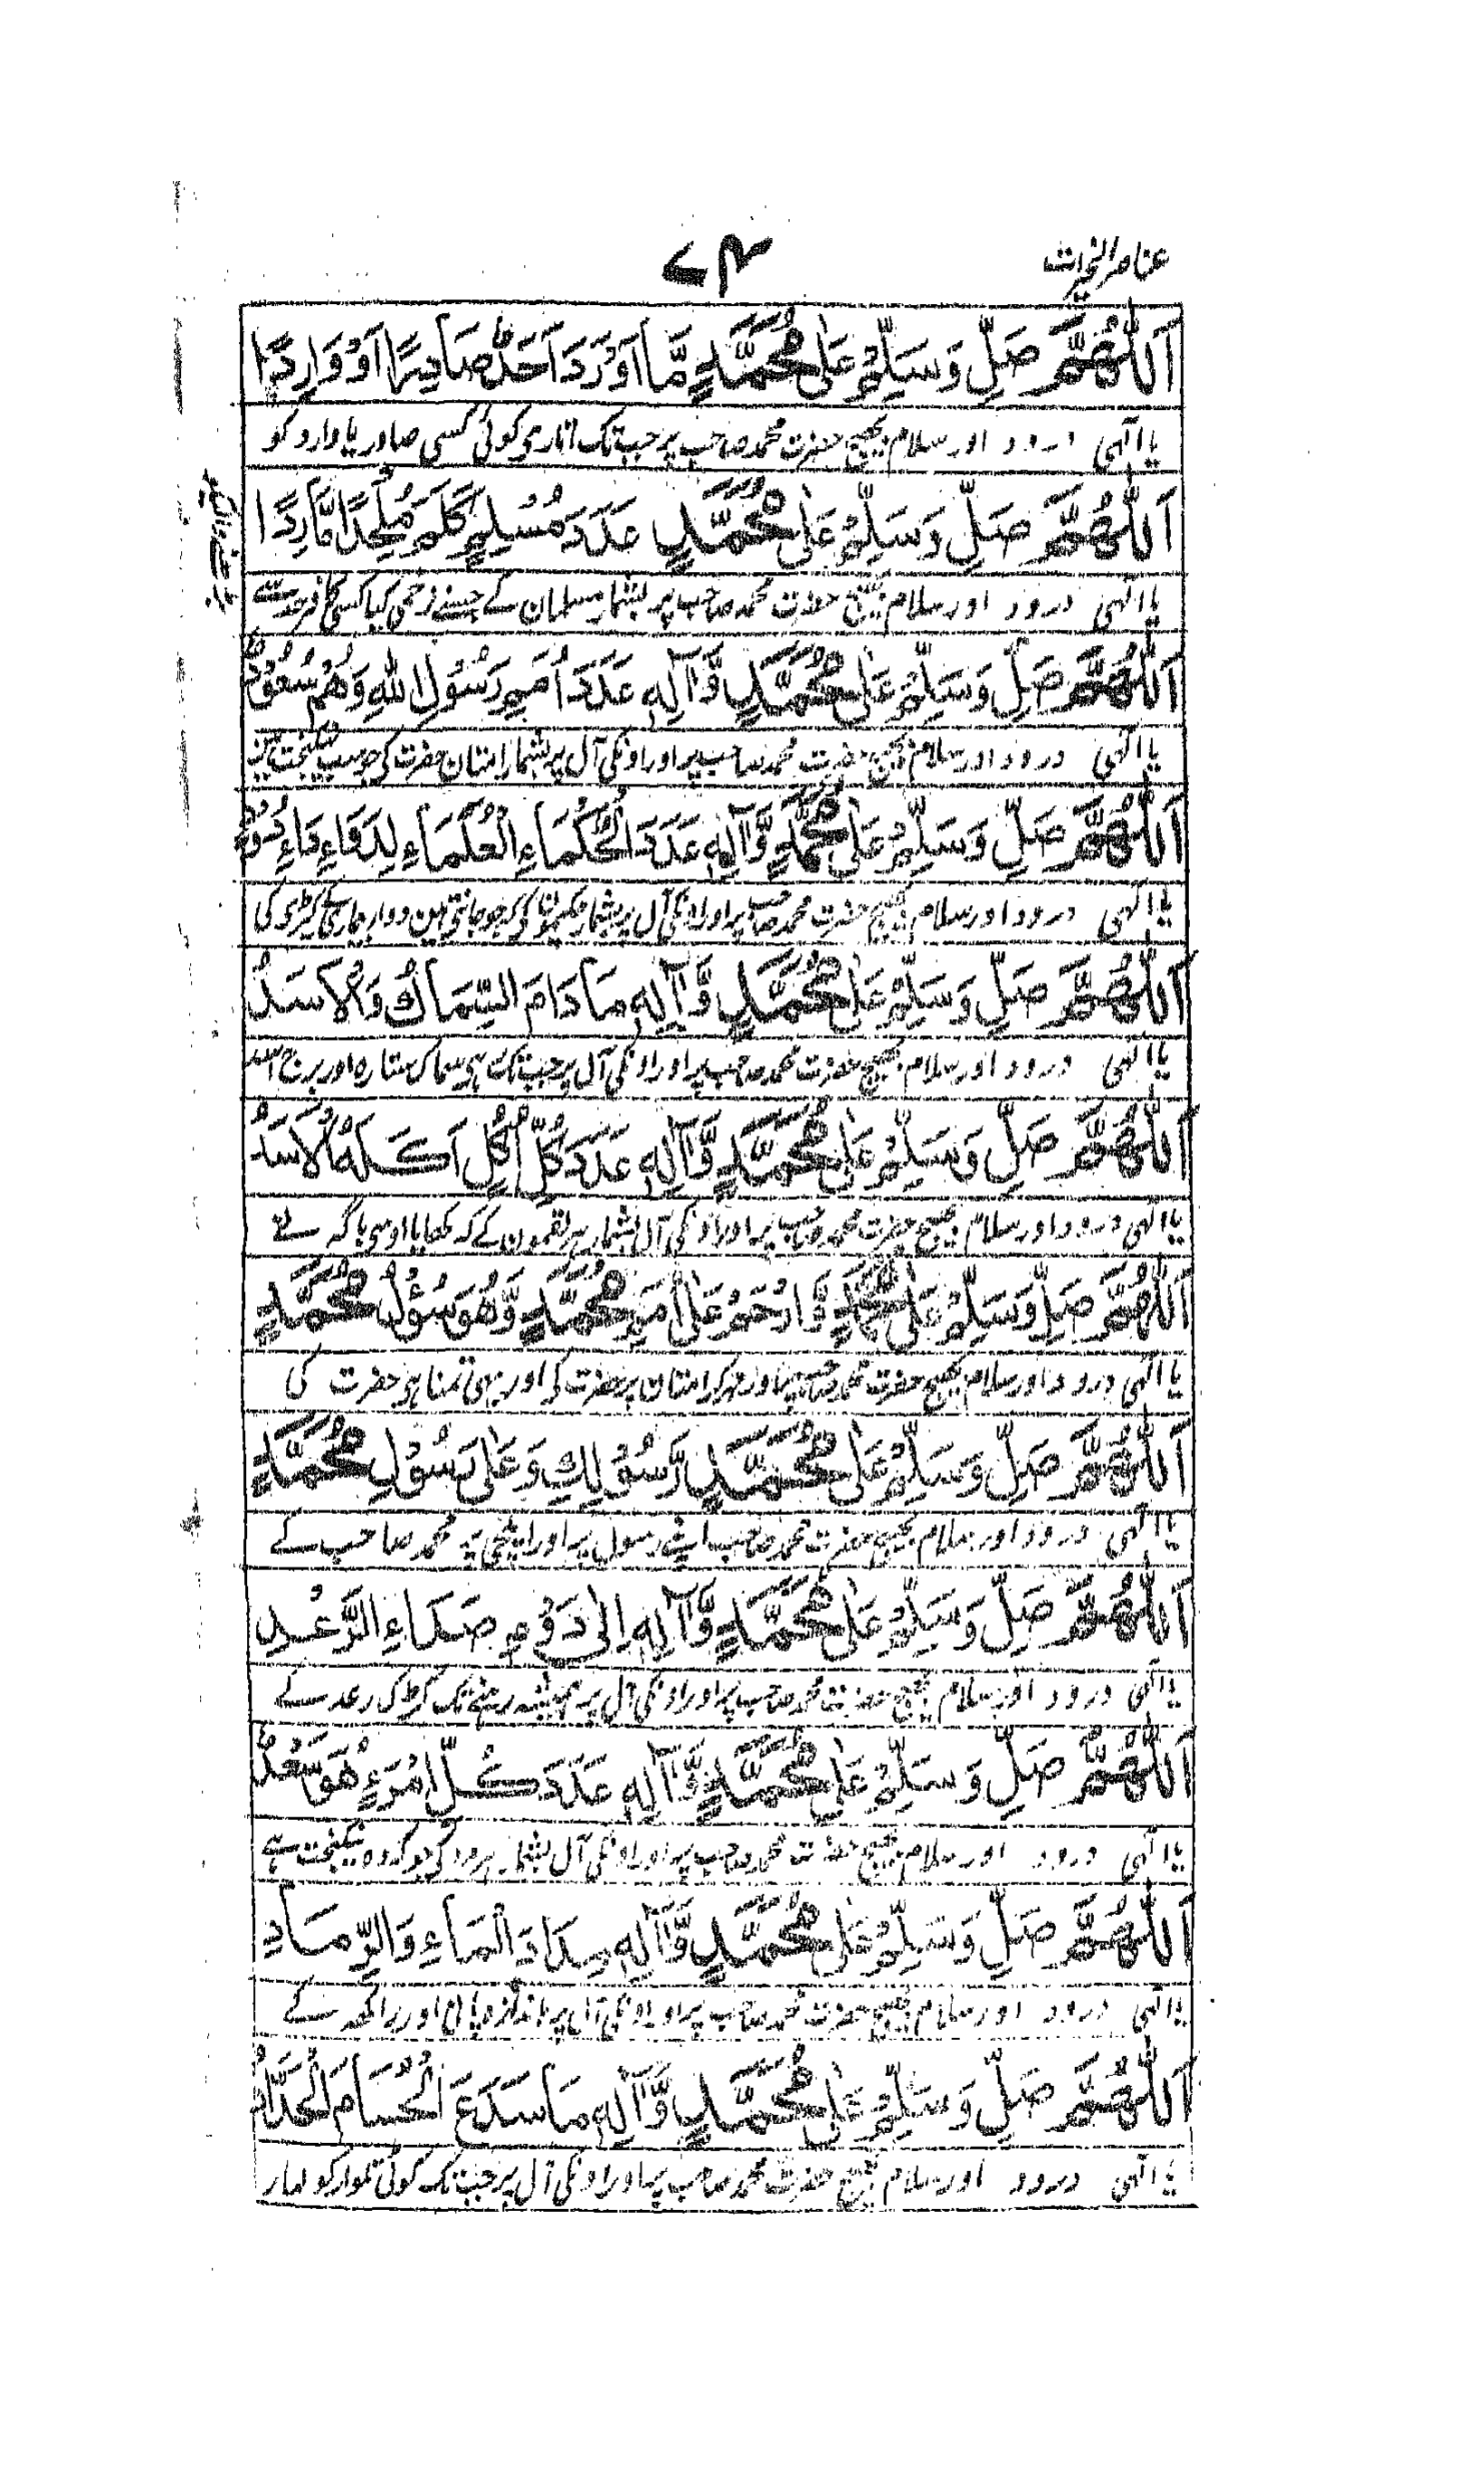 عناصر الخیرات
۷۴
اَللّٰهُمَّ صَلِّ وَسَلِّمْ عَلٰی مُحَمَّدٍ مَّا اَوْرَدَ اَحَدٌ صَادِرًا اَوْ وَارِدًا
یا الٰہی درود اور سلام بھیج حضرت محمد صاحب پر جب تک اتاری کوئی کسی صادر یا وارد کو
اَللّٰهُمَّ صَلِّ وَسَلِّمْ عَلٰی مُحَمَّدٍ عَدَدَ مُسْلِمٍ كَلَمَ مُلْحِدًا مَّارِدًا
یا الٰہی درود اور سلام بھیج حضرت محمد صاحب پر بشمار مسلمان کے جسنے زخمی کیا کسی
اَللّٰهُمَّ صَلِّ وَسَلِّمْ عَلٰی مُحَمَّدٍ وَّاٰلِهٖ عَدَدَ اُمَمِ رَسُوْلِ اللّٰهِ وَهُمْ سُعُوْدٌ
یا الٰہی درود اور سلام بھیج حضرت محمد صاحب پر اور اونکی آل پر بشمار امتان حضرت کی جو سب نیکبخت ہین
اَللّٰهُمَّ صَلِّ وَسَلِّمْ عَلٰی مُحَمَّدٍ وَّاٰلِهٖ عَدَدَ الْحُكَمَاءِ الْعُلَمَاءِ لِدَوَاءِ دَاءِ
یا الٰہی درود اور سلام بھیج حضرت محمد صاحب پر اور اونکی آل پر بشمار کی جو جانتے ہین دوا بیماری کی
اَللّٰهُمَّ صَلِّ وَسَلِّمْ عَلٰی مُحَمَّدٍ وَّاٰلِهٖ مَا دَامَ السِّمَاكُ وَالْاَسَدُ
یا الٰہی درود اور سلام بھیج حضرت محمد صاحب پر اور اونکی آل پر جب تک ہی سماک ستارہ اور برج اسد
اَللّٰهُمَّ صَلِّ وَسَلِّمْ عَلٰی مُحَمَّدٍ وَّاٰلِهٖ عَدَدَ كُلِّ اُكُلٍ اَكَلَهُ الْاَسَدُ
یا الٰہی درود اور سلام بھیج حضرت محمد صاحب پر اور اونکی آل بشمار ہر لقمون کے کہ کھایا اوسی باگہ نے
اَللّٰهُمَّ صَلِّ وَسَلِّمْ عَلٰی مُحَمَّدٍ وَّارْحَمْ عَلٰی اُمَمِ مُحَمَّدٍ وَّهُوَ سُؤْلُ مُحَمَّدٍ
یا الٰہی درود اور سلام بھیج حضرت محمد صاحب پر اور مہر کر امتان پر حضرت کی اور یہی تمنا ہی حضرت کی
اَللّٰهُمَّ صَلِّ وَسَلِّمْ عَلٰی مُحَمَّدٍ رَّسُوْلِكَ وَعَلٰی رَسُوْلِ مُحَمَّدٍ
یا الٰہی درود اور سلام بھیج حضرت محمد صاحب اپنے رسول پر اور ایلچی پر محمد صاحب کے
اَللّٰهُمَّ صَلِّ وَسَلِّمْ عَلٰی مُحَمَّدٍ وَّاٰلِهٖ اِلٰی دَوْمِ صَدَاءِ الرَّعْدِ
یا الٰہی درود اور سلام بھیج حضرت محمد صاحب پر اور اونکی آل پر ہمیشہ رہنے تک کڑک رعد کے
اَللّٰهُمَّ صَلِّ وَسَلِّمْ عَلٰی مُحَمَّدٍ وَّاٰلِهٖ عَدَدَ كُلِّ امْرَءٍ هُوَ سَعْدٌ
یا الٰہی درود اور سلام بھیج حضرت محمد صاحب پر اور اونکی آل بشمار ہر مرد کی جو کہ وہ نیکبخت ہے
اَللّٰهُمَّ صَلِّ وَسَلِّمْ عَلٰی مُحَمَّدٍ وَّاٰلِهٖ مِدَادَ الْمَاءِ وَالرِّمَادِ
یا الٰہی درود اور سلام بھیج حضرت محمد صاحب پر اور اونکی آل پر باندازہ پانی اور راکھہ کے
اَللّٰهُمَّ صَلِّ وَسَلِّمْ عَلٰی مُحَمَّدٍ وَّاٰلِهٖ مَا سَدَعَ الْحُسَامَ الْحَدَّادُ
یا الٰہی درود اور سلام بھیج حضرت محمد صاحب پر اور اونکی آل پر جب تک کوٹی تلوار کو لہار